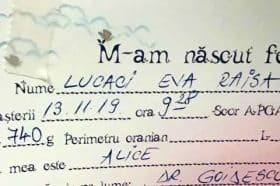 M-am născut fe
Nume LUCACI EVA RAISA
așterii 13.11.19 ora 9 28 Scor APGA
740 g Perimetru cranian L
mea este ALICE
DR GOIDESCU